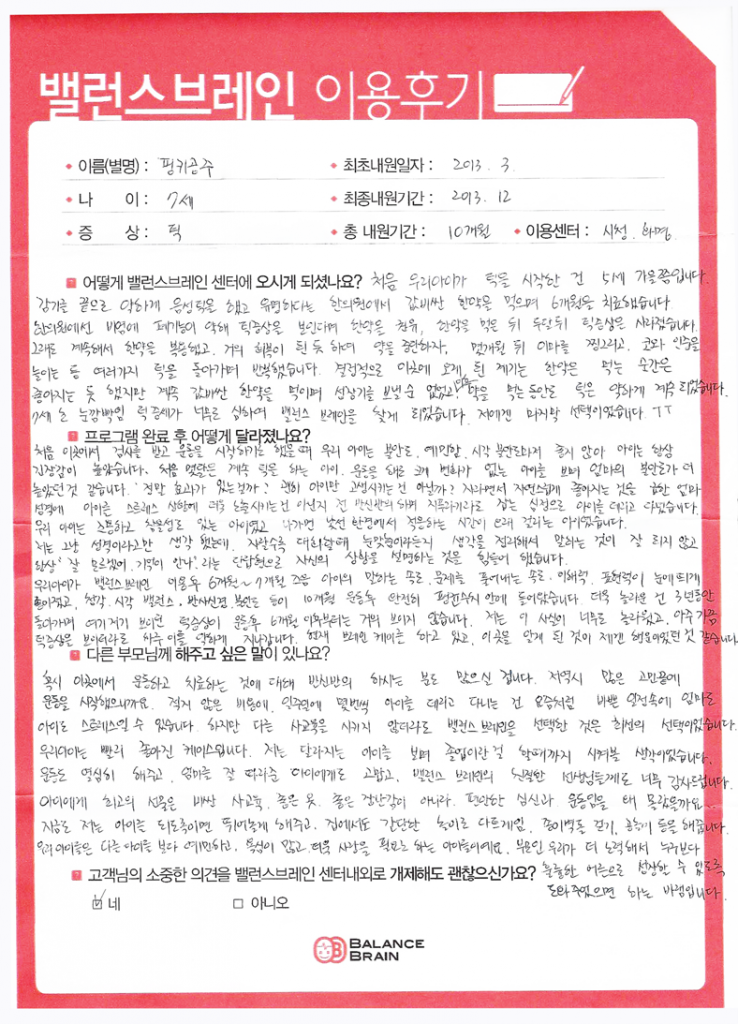 밸런스브레인 이용후기
이름(별명) : 핑키공주
최초내원일자 : 2013. 3
나 이 : 7세
최종내원기간 : 2013. 12
증 상 : 틱
총 내원기간 : 10개월
이용센터 : 시청.
어떻게 밸런스브레인 센터에 오시게 되셨나요? 처음 우리아이가 틱을 시작한 건 5세 가을쯤입니다.
감기를 끝으로 약하게 음성틱을 했고 유명하다는 한의원에서 값비싼 한약을 먹으며 6개월을 치료했습니다.
한의원에선 비염에 폐기능이 약해 틱증상을 보인다며 한약을 권유, 한약을 먹은 뒤 두달뒤 틱증상은 사라졌습니다.
그래도 계속해서 한약을 복용했고. 거의 회복이 된 듯 하여 약을 중단하자, 몇개월 뒤 이마를 찡그리고, 코와 인중을
늘이는 등 여러가지 틱을 돌아가며 반복했습니다. 결정적으로 이곳에 오게 된 계기는 한약은 먹는 순간은
좋아지는 듯 했지만 계속 값비싼 한약을 먹이며 성장기를 보낼 순 없었고! 약을 먹는 동안도 틱은 약하게 계속 되었습니다.
7세 초 눈깜빡임 틱 증세가 너무도 심하여 밸런스 브레인을 찾게 되었습니다. 저에겐 마지막 선택이었습니다. ㅜㅜ
프로그램 완료 후 어떻게 달라졌나요?
처음 이곳에서 검사를 받고 운동을 시작하기로 했을 때 우리 아이는 불안도. 예민함. 시각 불안도마저 좋지 않아 아이는 항상
긴장감이 높았습니다. 처음 몇달은 계속 틱을 하는 아이. 운동을 해도 크게 변화가 없는 아이를 보며 엄마의 불안도가 더
높았던 것 같습니다. '정말 효과가 있는걸까? 괜히 아이만 고생시키는 건 아닐까? 자라면서 자연스럽게 좋아지는 것을 급한 엄마
성격에 아이를 스트레스 상황에 더욱 노출시키는 건 아닐지 전 반신반의하며 지푸라기라도 잡는 심정으로 아이를 데리고 다녔습니다.
우리 아이는 조용하고 참을성도 있는 아이였고 나가면 낯선 환경에서 적응하는 시간이 오래 걸리는 아이였습니다.
저는 그냥 성격이라고만 생각 했는데. 자랄수록 대화할때 눈맞춤이라든지 생각을 정리해서 말하는 것이 잘 되지 않고
항상 '잘 모르겠어. 기억이 안나'. 라는 단답형으로 자신의 상황을 설명하는 것을 힘들어 했습니다.
우리아이가 밸런스브레인 이용후 6개월~7개월 즈음 아이의 말하는 속도. 문제를 풀어내는 속도. 이해력. 표현력이 눈에 띄게
좋아졌고, 청각. 시각 밸런스. 반사신경. 불안도 등이 10개월 운동후 완전히 평균수치 안에 들어왔습니다. 더욱 놀라운 건 3년동안
돌아가며 여기저기 보이던 틱증상이 운동후 6개월 이후부터는 거의 보이지 않습니다. 저는 이 사실이 너무도 놀라웠고, 아주 가끔
틱증상은 보이더라도 하루 이틀 약하게 지나갑니다. 현재 브레인 케어를 하고 있고, 이곳을 알게 된 것이 제겐 행운이었던 것 같습니다.
다른 부모님께 해주고 싶은 말이 있나요?
혹시 이곳에서 운동하고 치료하는 것에 대해 반신반의 하시는 분도 많으실 겁니다. 저역시 많은 고민끝에
운동을 시작했으니까요. 적지 않은 비용에. 일주일에 몇번씩 아이를 데리고 다니는 건 요즘처럼 바쁜 일정속에 엄마도
아이도 스트레스일 수 있습니다. 하지만 다른 사교육을 시키지 않더라도 밸런스브레인을 선택한 것은 최선의 선택이었습니다.
우리아이는 빨리 좋아진 케이스입니다. 저는 달라지는 아이를 보며 졸업이란걸 할때까지 시켜볼 생각이었습니다.
운동도 열심히 해주고. 엄마를 잘 따라준 아이에게도 고맙고, 밸런스 브레인의 친절한 선생님들께도 너무 감사드립니다.
아이에게 최고의 선물은 비싼 사교육. 좋은 옷. 좋은 장난감이 아니라. 편안한 심신과 운동일 때 몰랐을까요..
지금도 저는 아이를 되도록이면 뛰어놀게 해주고. 집에서도 간단한 다트게임. 걷기. 공놀이 등을 해줍니다.
우리 아이들은 다른 아이들 보다 예민하고. 욕심이 많고. 더욱 사랑을 필요로 하는 아이들이에요. 부모인 우리가 더 노력해서 누구보다
고객님의 소중한 의견을 밸런스브레인 센터내외로 개제해도 괜찮으신가요? 훌륭한 어른으로 성장할 수 있도록
도와주었으면 하는 바램입니다.
네
아니오
BALANCE
BRAIN